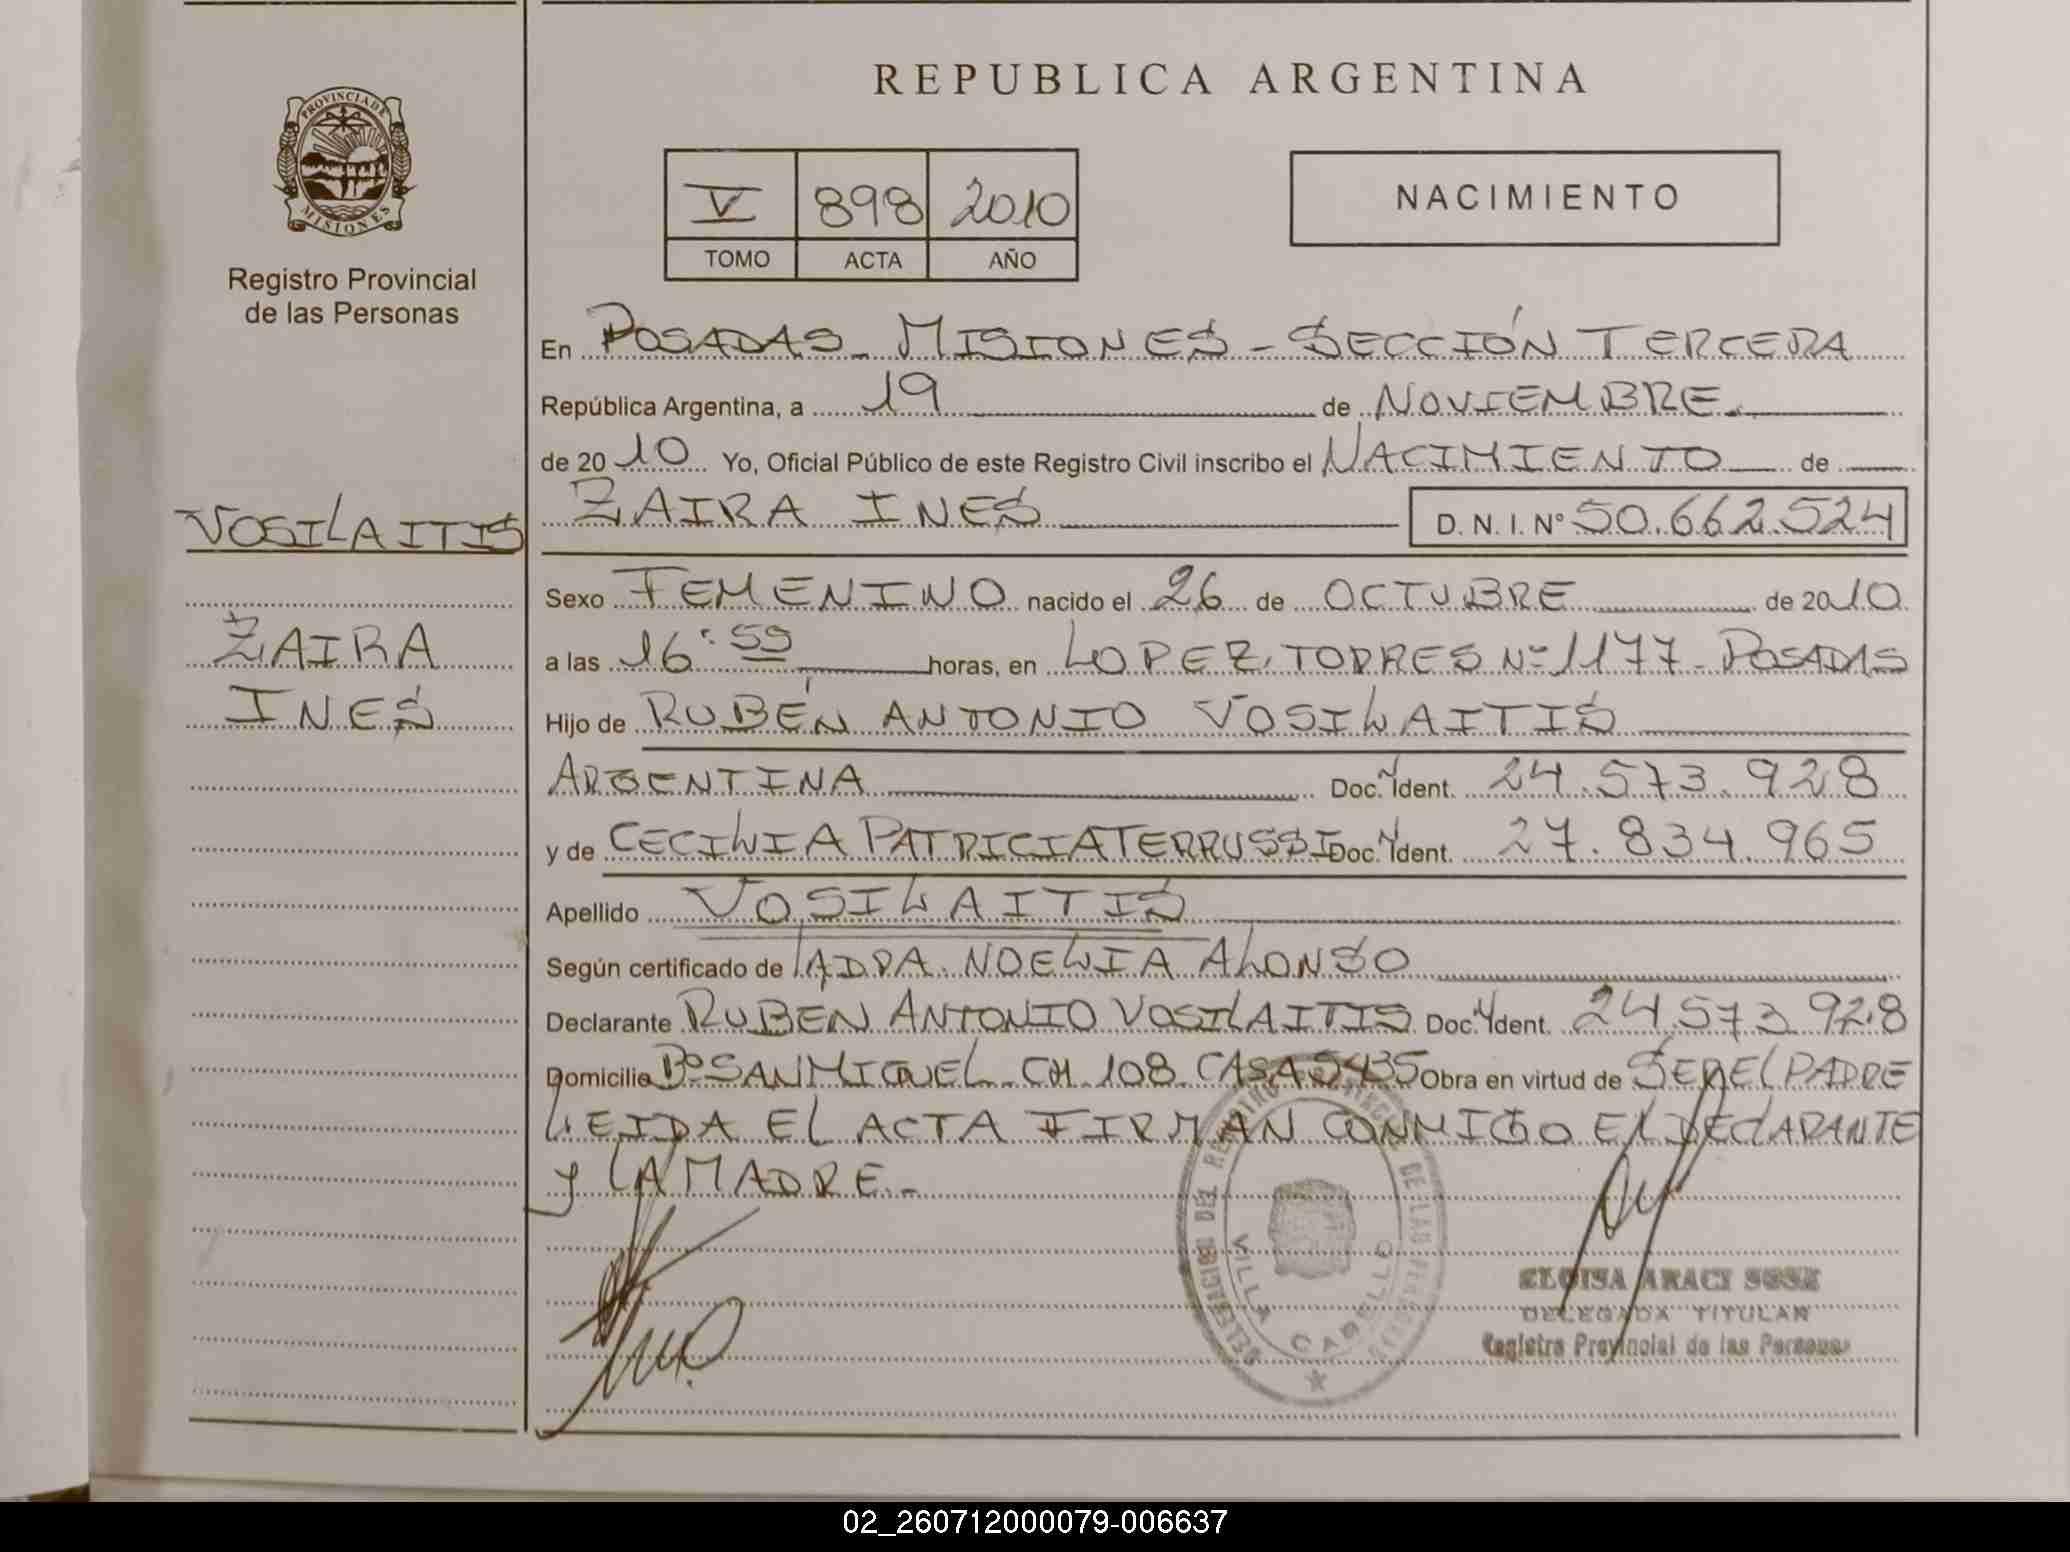 REPUBLICA ARGENTINA
PROVINCIA DE
MISIONES
Registro Provincial
de las Personas
V 898 2010
TOMO ACTA AÑO
NACIMIENTO
En POSADAS - MISIONES - SECCIÓN TERCERA
República Argentina, a 19 de NOVIEMBRE
de 2010 Yo, Oficial Público de este Registro Civil inscribo el NACIMIENTO de
ZAIRA INES D.N.I. Nº 50.662.524
VOSILAITIS
ZAIRA
INES
Sexo FEMENINO nacido el 26 de OCTUBRE de 2010
a las 16:59 horas, en LOPEZ TORRES Nº 1177 - POSADAS
Hijo de RUBÉN ANTONIO VOSILAITIS
ARGENTINA Doc. Ident. 24.573.928
y de CECILIA PATRICIA TERRUSSI Doc. Ident. 27.834.965
Apellido VOSILAITIS
Según certificado de NOELIA ALONSO
Declarante RUBEN ANTONIO VOSILAITIS Doc. Ident. 24.573.928
Domicilio Bº SAN MIGUEL CH 108 CASA 5435 Obra en virtud de SER EL PADRE
LEIDA EL ACTA FIRMAN CONMIGO EL DECLARANTE
y LA MADRE.-
DELEGACION DEL REGISTRO PROVINCIAL DE LAS PERSONAS
VILLA CABELLO
ELOISA ARACI SOSE
DELEGADA TITULAR
Registro Provincial de las Personas
02_260712000079-006637